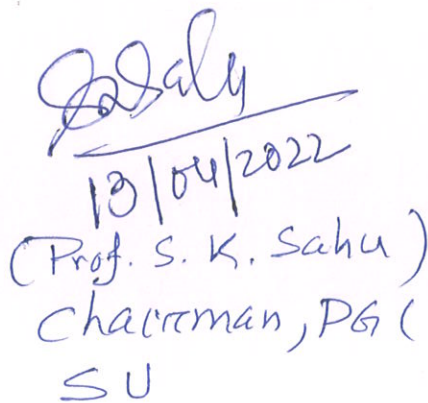 13/04/2022
(Prof. S. K. Sahu)
Chairman, PG (
SU